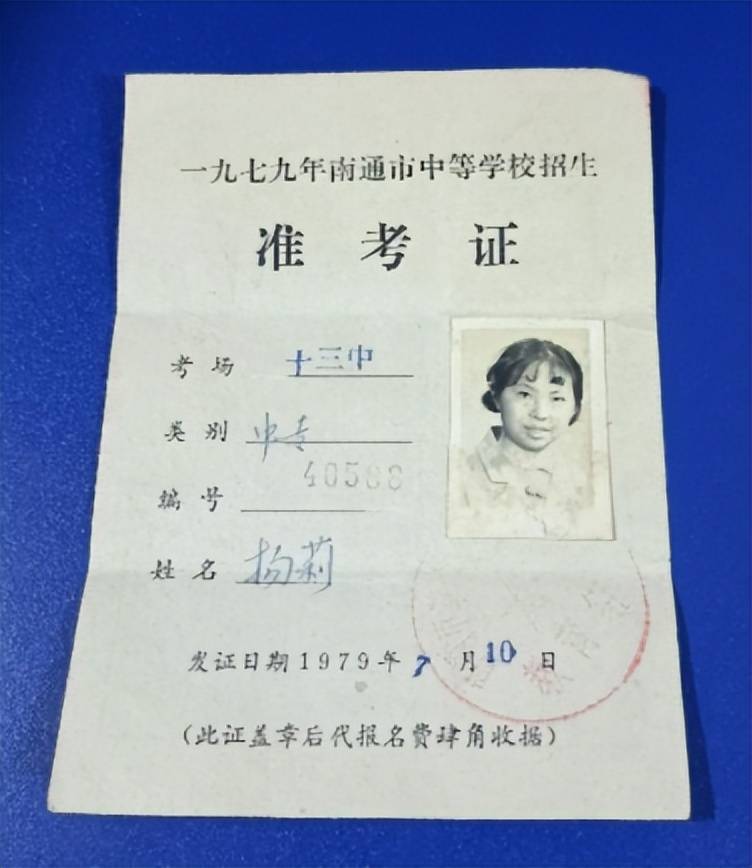 一九七九年南通市中等学校招生
准考证
考场 十三中
类别 中专
编号 40588
姓名 杨莉
发证日期1979年7月10日
(此证盖章后代报名费肆角收据)